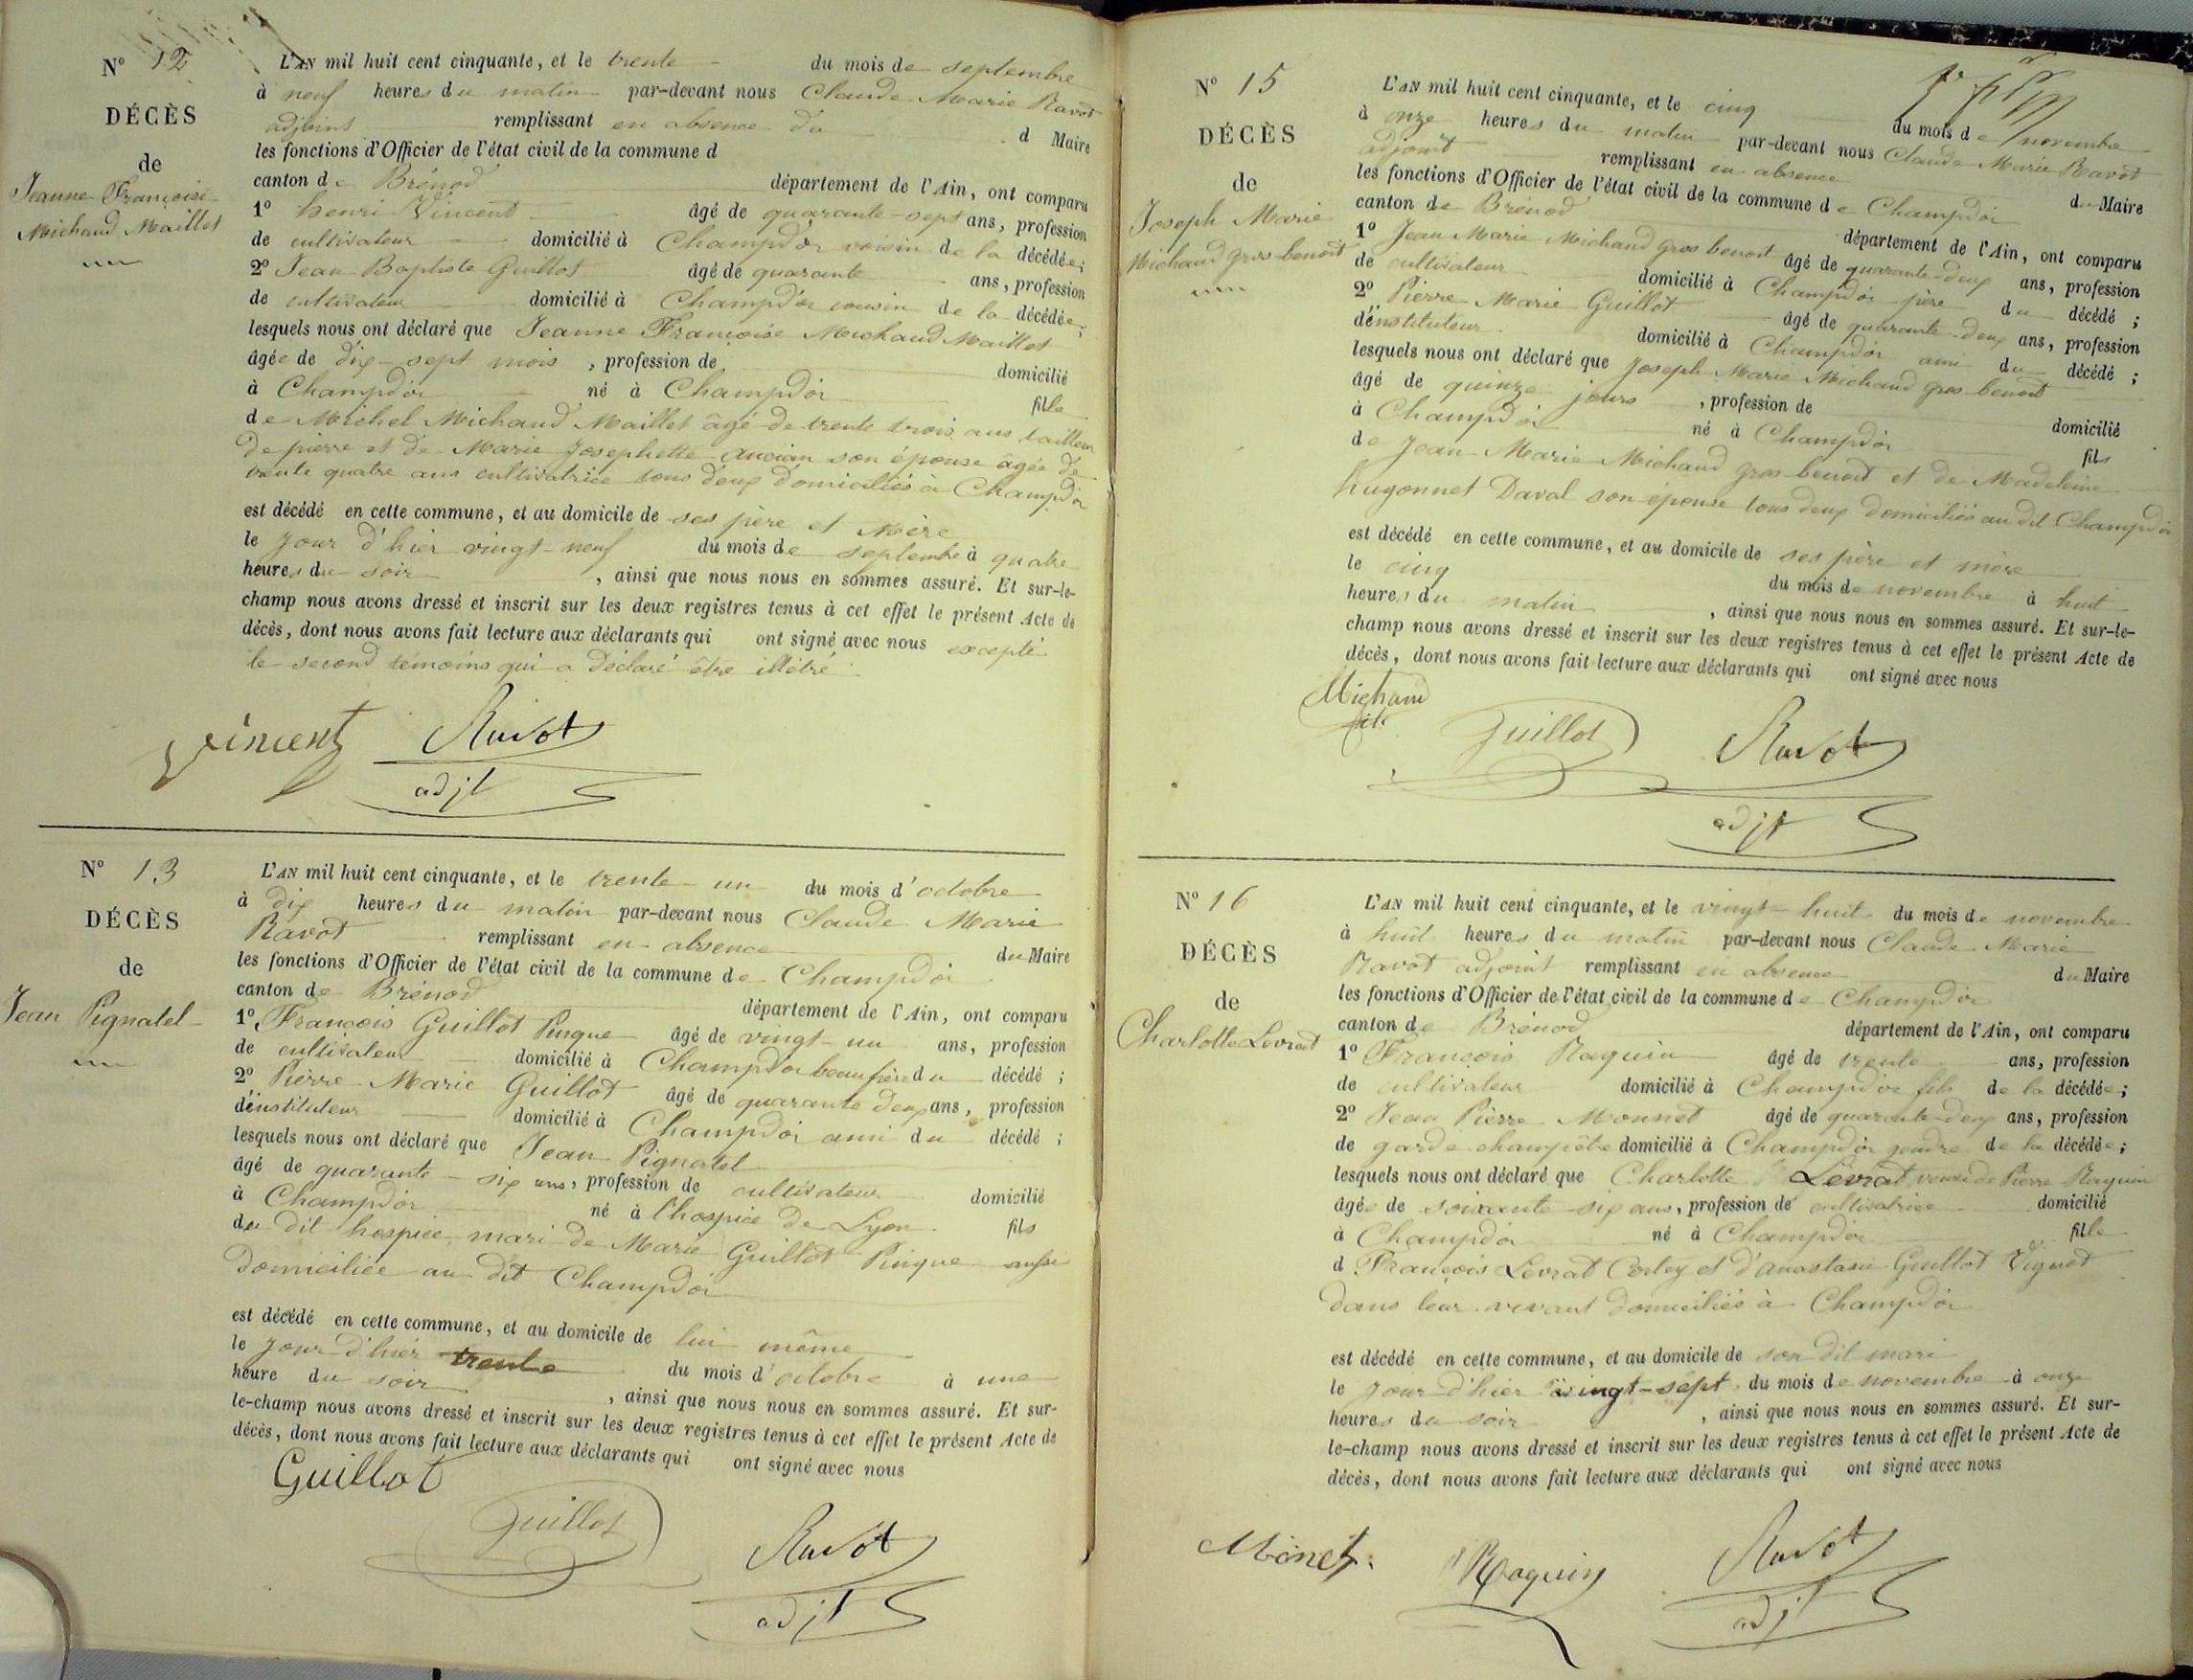 N° 12
DÉCÈS
de
Jeanne Françoise
Michaud Maillet
L'AN mil huit cent cinquante, et le trente du mois de septembre
à neuf heures du matin par-devant nous Claude Marie Ravot
adjoint remplissant en absence du d Maire
les fonctions d'Officier de l'état civil de la commune d
canton de Brénod département de l'Ain, ont comparu
1° henri Vincent âgé de quarante-sept ans, profession
de cultivateur domicilié à Champdor voisin de la décédée;
2° Jean Baptiste Guillot âgé de quarante ans, profession
de cultivateur domicilié à Champdor cousin de la décédée;
lesquels nous ont déclaré que Jeanne Françoise Michaud Maillet
âgée de dix-sept mois, profession de domicilié
à Champdor né à Champdor fille
de Michel Michaud Maillet âgé de trente trois ans tailleur
de pierre et de Marie Josephette Ancian son épouse âgée de
trente quatre ans cultivatrice tous deux domiciliés à Champdor
est décédé en cette commune, et au domicile de ses père et Mère
le jour d'hier vingt-neuf du mois de septembre à quatre
heures du soir, ainsi que nous nous en sommes assuré. Et sur-le-
champ nous avons dressé et inscrit sur les deux registres tenus à cet effet le présent Acte de
décès, dont nous avons fait lecture aux déclarants qui ont signé avec nous excepté
le second témoins qui a déclaré être illétré
Vincent Ravot
adjt
N° 13
DÉCÈS
de
Jean Pignatel
L'AN mil huit cent cinquante, et le trente-un du mois d'octobre
à dix heures du matin par-devant nous Claude Marie
Ravot remplissant en absence du Maire
les fonctions d'Officier de l'état civil de la commune de Champdor
canton de Brénod département de l'Ain, ont comparu
1° François Guillot Pingue âgé de vingt-un ans, profession
de cultivateur domicilié à Champdor beaufrère du décédé;
2° Pierre Marie Guillot âgé de quarante deux ans, profession
d'instituteur domicilié à Champdor ami du décédé;
lesquels nous ont déclaré que Jean Pignatel
âgé de quarante-six ans, profession de cultivateur domicilié
à Champdor né à l'hospice de Lyon fils
du dit hospice mari de Marie Guillot Pingue aussi
domiciliée au dit Champdor
est décédé en cette commune, et au domicile de lui même
le jour d'hier trente du mois d'octobre à une
heure du soir, ainsi que nous nous en sommes assuré. Et sur-
le-champ nous avons dressé et inscrit sur les deux registres tenus à cet effet le présent Acte de
décès, dont nous avons fait lecture aux déclarants qui ont signé avec nous
Guillot
Guillot Ravot
adjt
N° 15
DÉCÈS
de
Joseph Marie
Michaud gros benoit
L'AN mil huit cent cinquante, et le cinq du mois de novembre
à onze heures du matin par-devant nous Claude Marie Ravot
adjoint remplissant en absence du Maire
les fonctions d'Officier de l'état civil de la commune de Champdor
canton de Brénod département de l'Ain, ont comparu
1° Jean Marie Michaud gros benoit âgé de quarante-deux ans, profession
de cultivateur domicilié à Champdor père du décédé;
2° Pierre Marie Guillot âgé de quarante-deux ans, profession
d'instituteur domicilié à Champdor ami du décédé;
lesquels nous ont déclaré que Joseph Marie Michaud gros benoit
âgé de quinze jours, profession de domicilié
à Champdor né à Champdor fils
de Jean Marie Michaud gros benoit et de Madeleine
hugonnet Daval son épouse tous deux domiciliés au dit Champdor
est décédé en cette commune, et au domicile de ses père et mère
le cinq du mois de novembre à huit
heures du matin, ainsi que nous nous en sommes assuré. Et sur-le-
champ nous avons dressé et inscrit sur les deux registres tenus à cet effet le présent Acte de
décès, dont nous avons fait lecture aux déclarants qui ont signé avec nous
Michaud
Guillot Ravot
adjt
N° 16
DÉCÈS
de
Charlotte Levrat
L'AN mil huit cent cinquante, et le vingt-huit du mois de novembre
à huit heures du matin par-devant nous Claude Marie
Ravot adjoint remplissant en absence du Maire
les fonctions d'Officier de l'état civil de la commune de Champdor
canton de Brénod département de l'Ain, ont comparu
1° François Raquin âgé de trente ans, profession
de cultivateur domicilié à Champdor fils de la décédée;
2° Jean Pierre Monnet âgé de quarante-deux ans, profession
de garde champêtre domicilié à Champdor gendre de la décédée;
lesquels nous ont déclaré que Charlotte Levrat veuve de Pierre Raquin
âgée de soixante-six ans, profession de cultivatrice domicilié
à Champdor né à Champdor fille
d François Levrat Corley et d'anastasie Guillot Viguet
dans leur vivant domiciliés à Champdor
est décédé en cette commune, et au domicile de son dit mari
le jour d'hier vingt-sept du mois de novembre à onze
heures du soir, ainsi que nous nous en sommes assuré. Et sur-
le-champ nous avons dressé et inscrit sur les deux registres tenus à cet effet le présent Acte de
décès, dont nous avons fait lecture aux déclarants qui ont signé avec nous
Monet Raquin Ravot
adjt